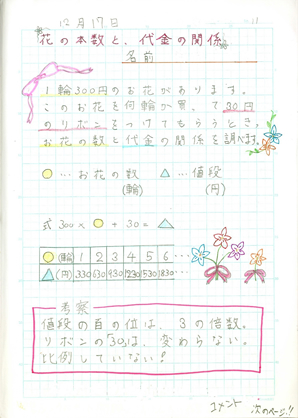 12月17日
花の本数と、代金の関係
名前
1輪300円のお花があります。
このお花を何輪か買って30円
のリボンをつけてもらうとき、
お花の数と代金の関係を調べます。
○…お花の数 △…値段
(輪) (円)
式300×○+30=△
○(輪) 1 2 3 4 5 6 …
△(円) 330 630 930 1230 1530 1830 …
考察
値段の百の位は、3の倍数。
リボンの「30」は、変わらない。
比例していない!
コメント 次のページ!!